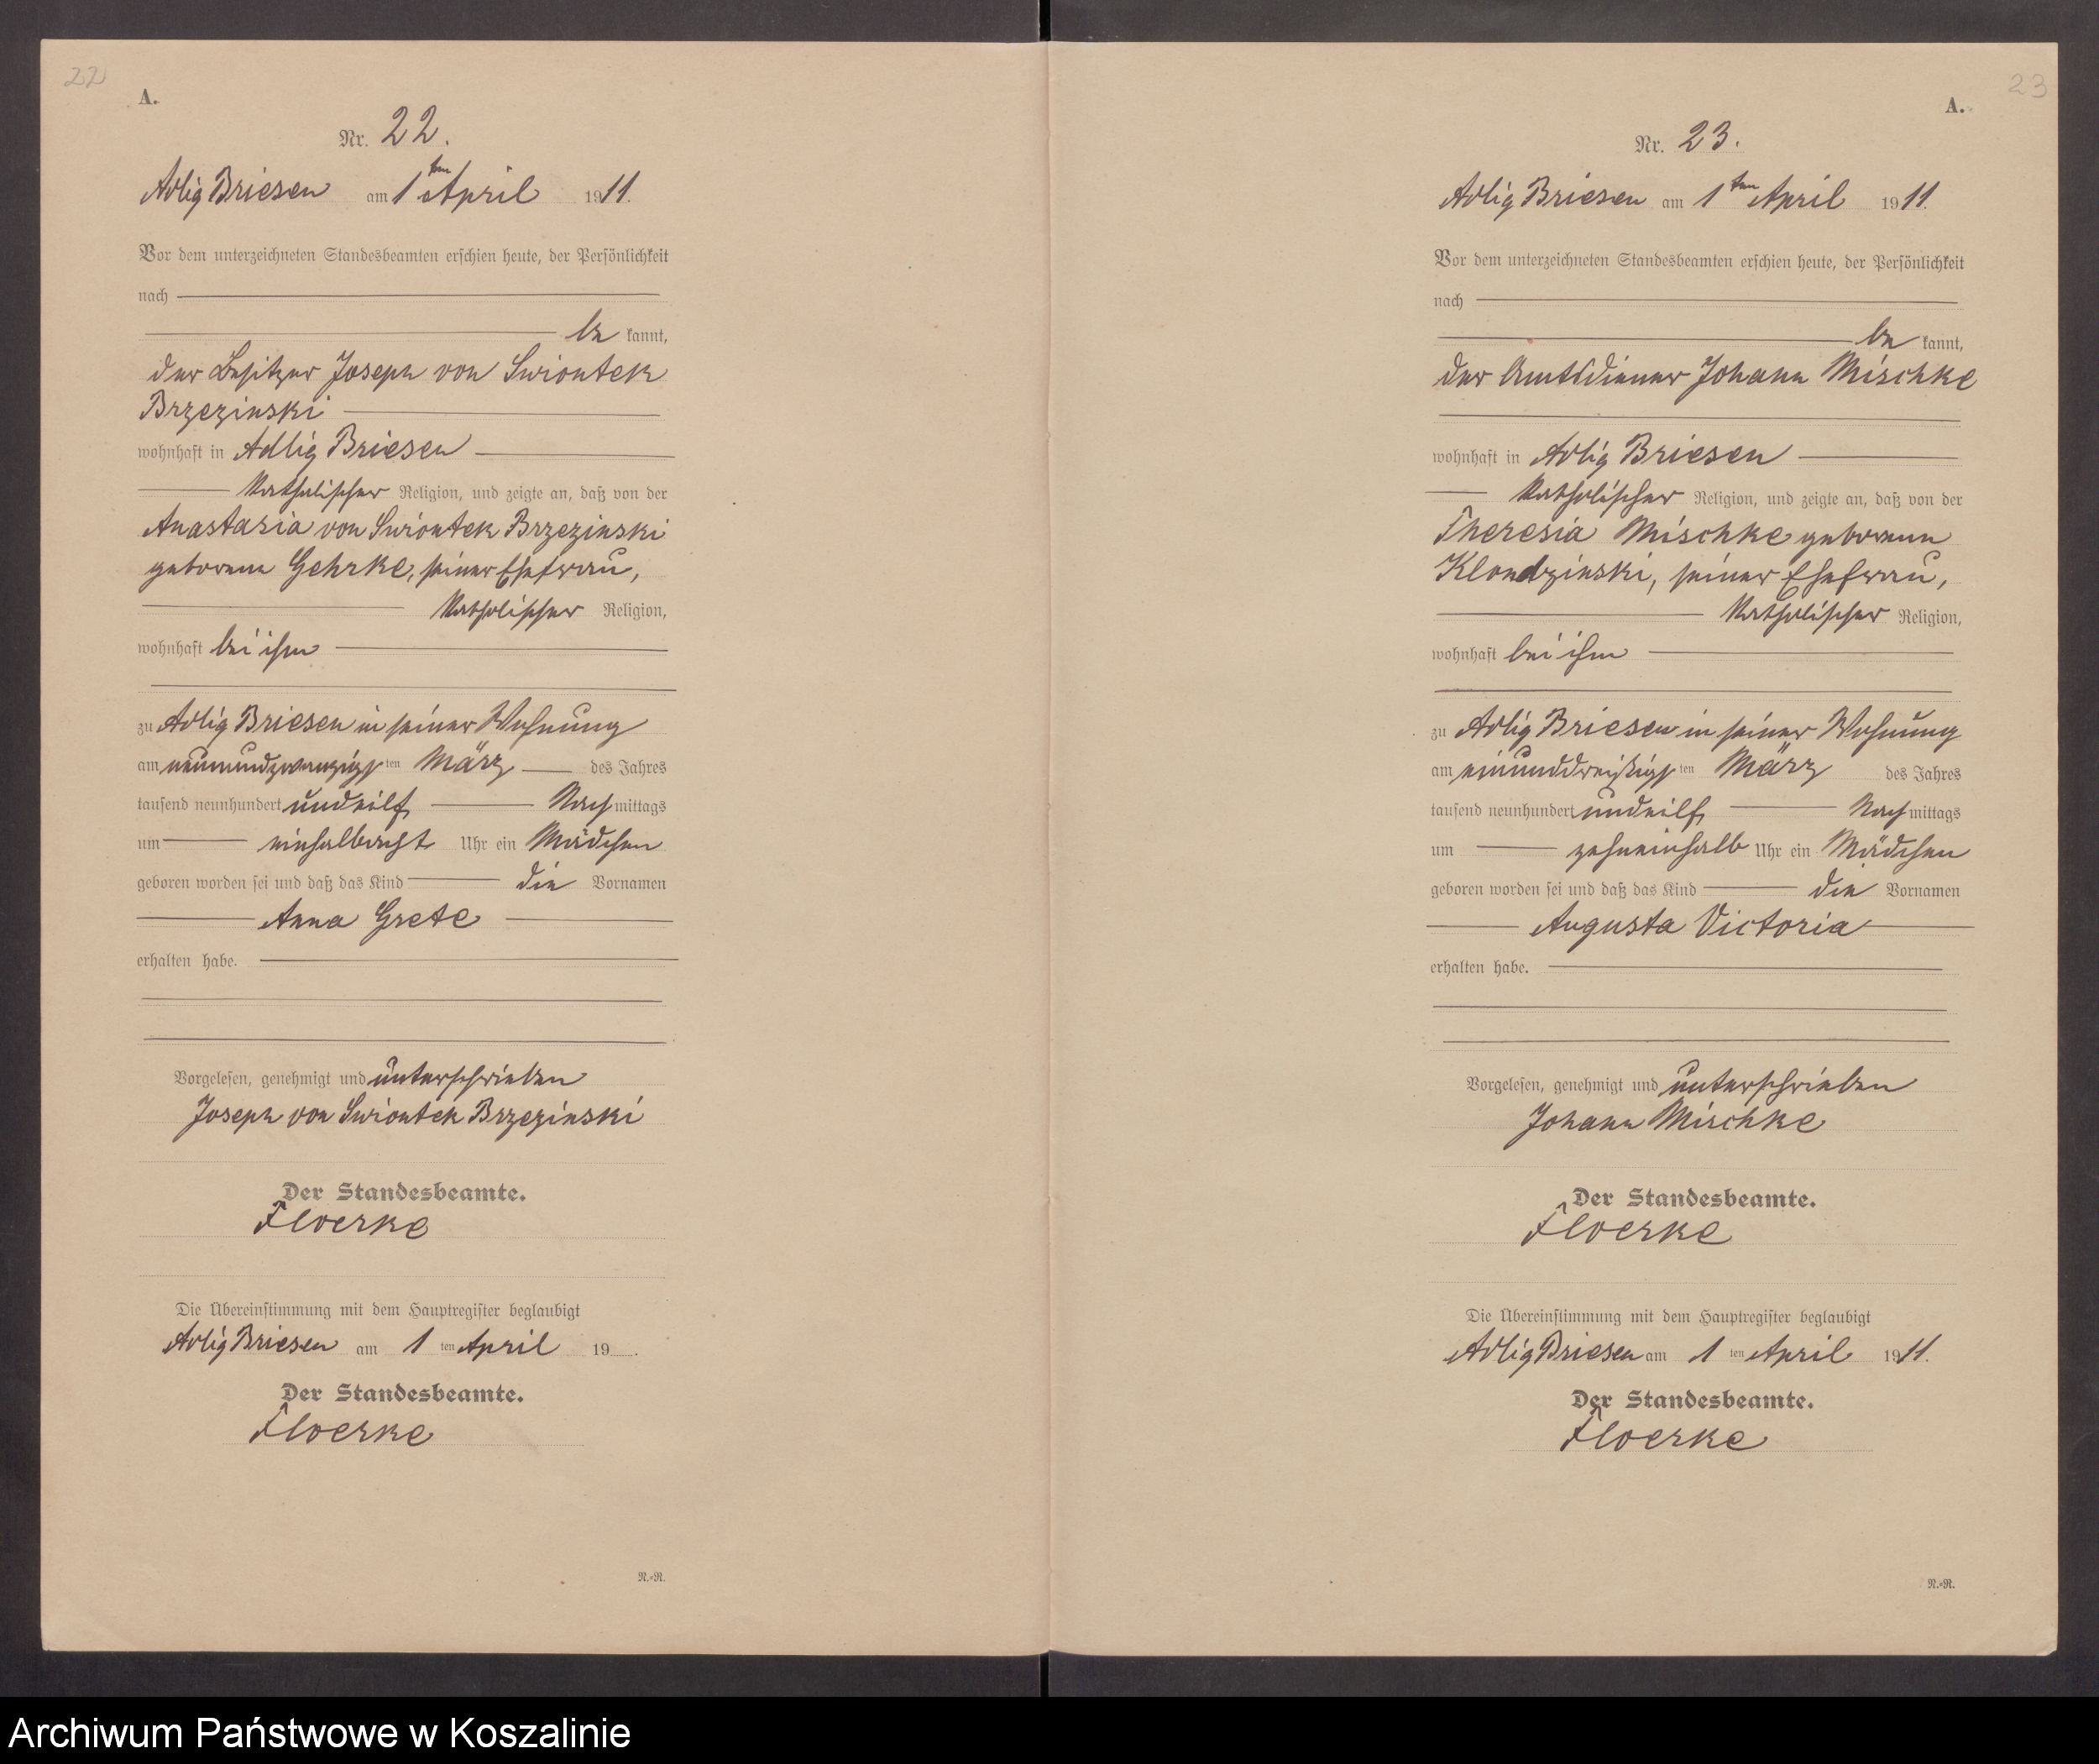 22
A.
Nr. 22.
Adlig Briesen am 1ten April 1911.
Vor dem unterzeichneten Standesbeamten erschien heute, der Persönlichkeit
nach
be kannt,
der Besitzer Joseph von Swiontek
Brzezinski
wohnhaft in Adlig Briesen
katholischer Religion, und zeigte an, daß von der
Anastasia von Swiontek Brzezinski
geborene Gehrke, seiner Ehefrau,
katholischer Religion,
wohnhaft bei ihm
zu Adlig Briesen in seiner Wohnung
am neunundzwanzigsten März des Jahres
tausend neunhundert undeilf Nachmittags
um einhalbacht Uhr ein Mädchen
geboren worden sei und daß das Kind die Vornamen
Anna Grete
erhalten habe.
Vorgelesen, genehmigt und unterschrieben
Joseph von Swiontek Brzezinski
Der Standesbeamte.
Floerke
Die Übereinstimmung mit dem Hauptregister beglaubigt
Adlig Briesen am 1ten April 19 .
Der Standesbeamte.
Floerke
N.=N.
23
A.
Nr. 23.
Adlig Briesen am 1ten April 1911.
Vor dem unterzeichneten Standesbeamten erschien heute, der Persönlichkeit
nach
be kannt,
der Amtsdiener Johann Mischke
wohnhaft in Adlig Briesen
katholischer Religion, und zeigte an, daß von der
Theresia Mischke geborene
Klondzinski, seiner Ehefrau,
katholischer Religion,
wohnhaft bei ihm
zu Adlig Briesen in seiner Wohnung
am einunddreißigsten März des Jahres
tausend neunhundert undeilf Nachmittags
um zehneinhalb Uhr ein Mädchen
geboren worden sei und daß das Kind die Vornamen
Augusta Victoria
erhalten habe.
Vorgelesen, genehmigt und unterschrieben
Johann Mischke
Der Standesbeamte.
Floerke
Die Übereinstimmung mit dem Hauptregister beglaubigt
Adlig Briesen am 1ten April 1911.
Der Standesbeamte.
Floerke
N.=N.
Archiwum Państwowe w Koszalinie